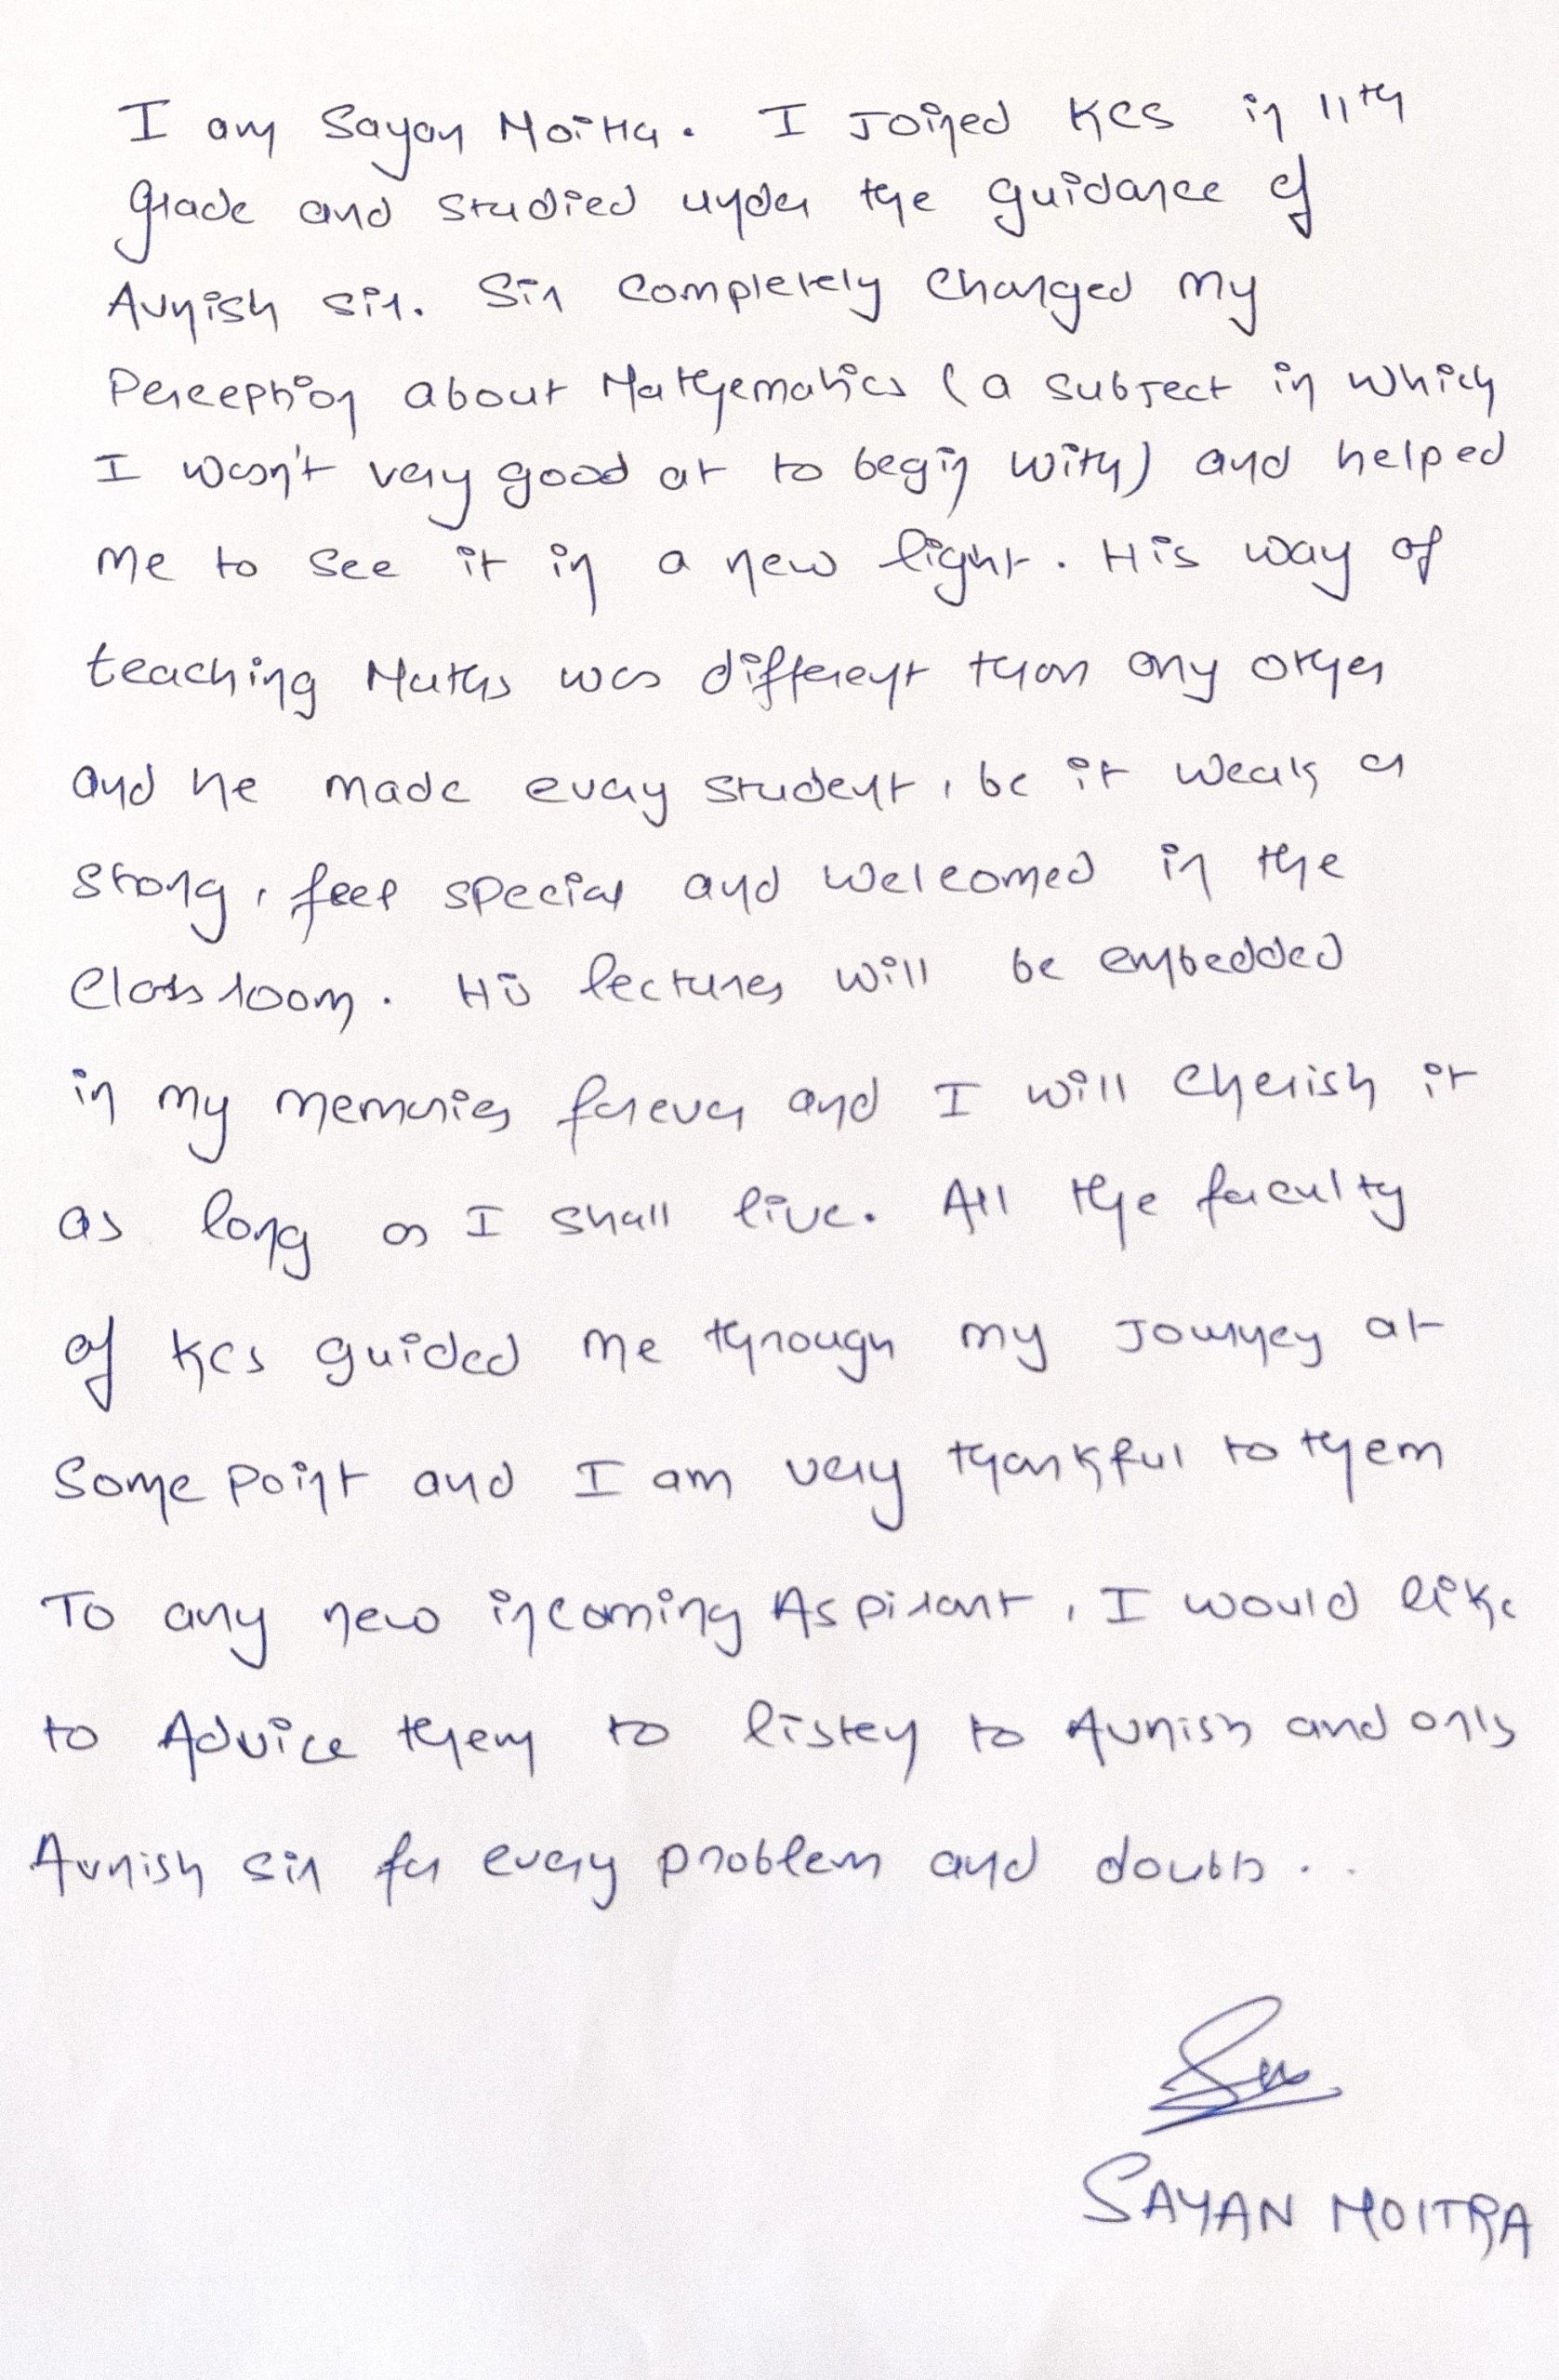 I am Sayan Moitra. I Joined KCS in 11th
grade and studied under the guidance of
Avnish sir. Sir completely changed my
Perception about Mathematics (a subject in which
I wasn't very good at to begin with) and helped
me to see it in a new light. His way of
teaching Maths was different than any other
and he made every student, be it weak or
strong, feel special and welcomed in the
Classroom. His lectures will be embedded
in my memories forever and I will cherish it
as long as I shall live. All the faculty
of KCS guided me through my Journey at
Some point and I am very thankful to them
To any new incoming Aspirant, I would like
to Advice them to listen to Avnish and only
Avnish sir for every problem and doubts..
SAYAN MOITRA